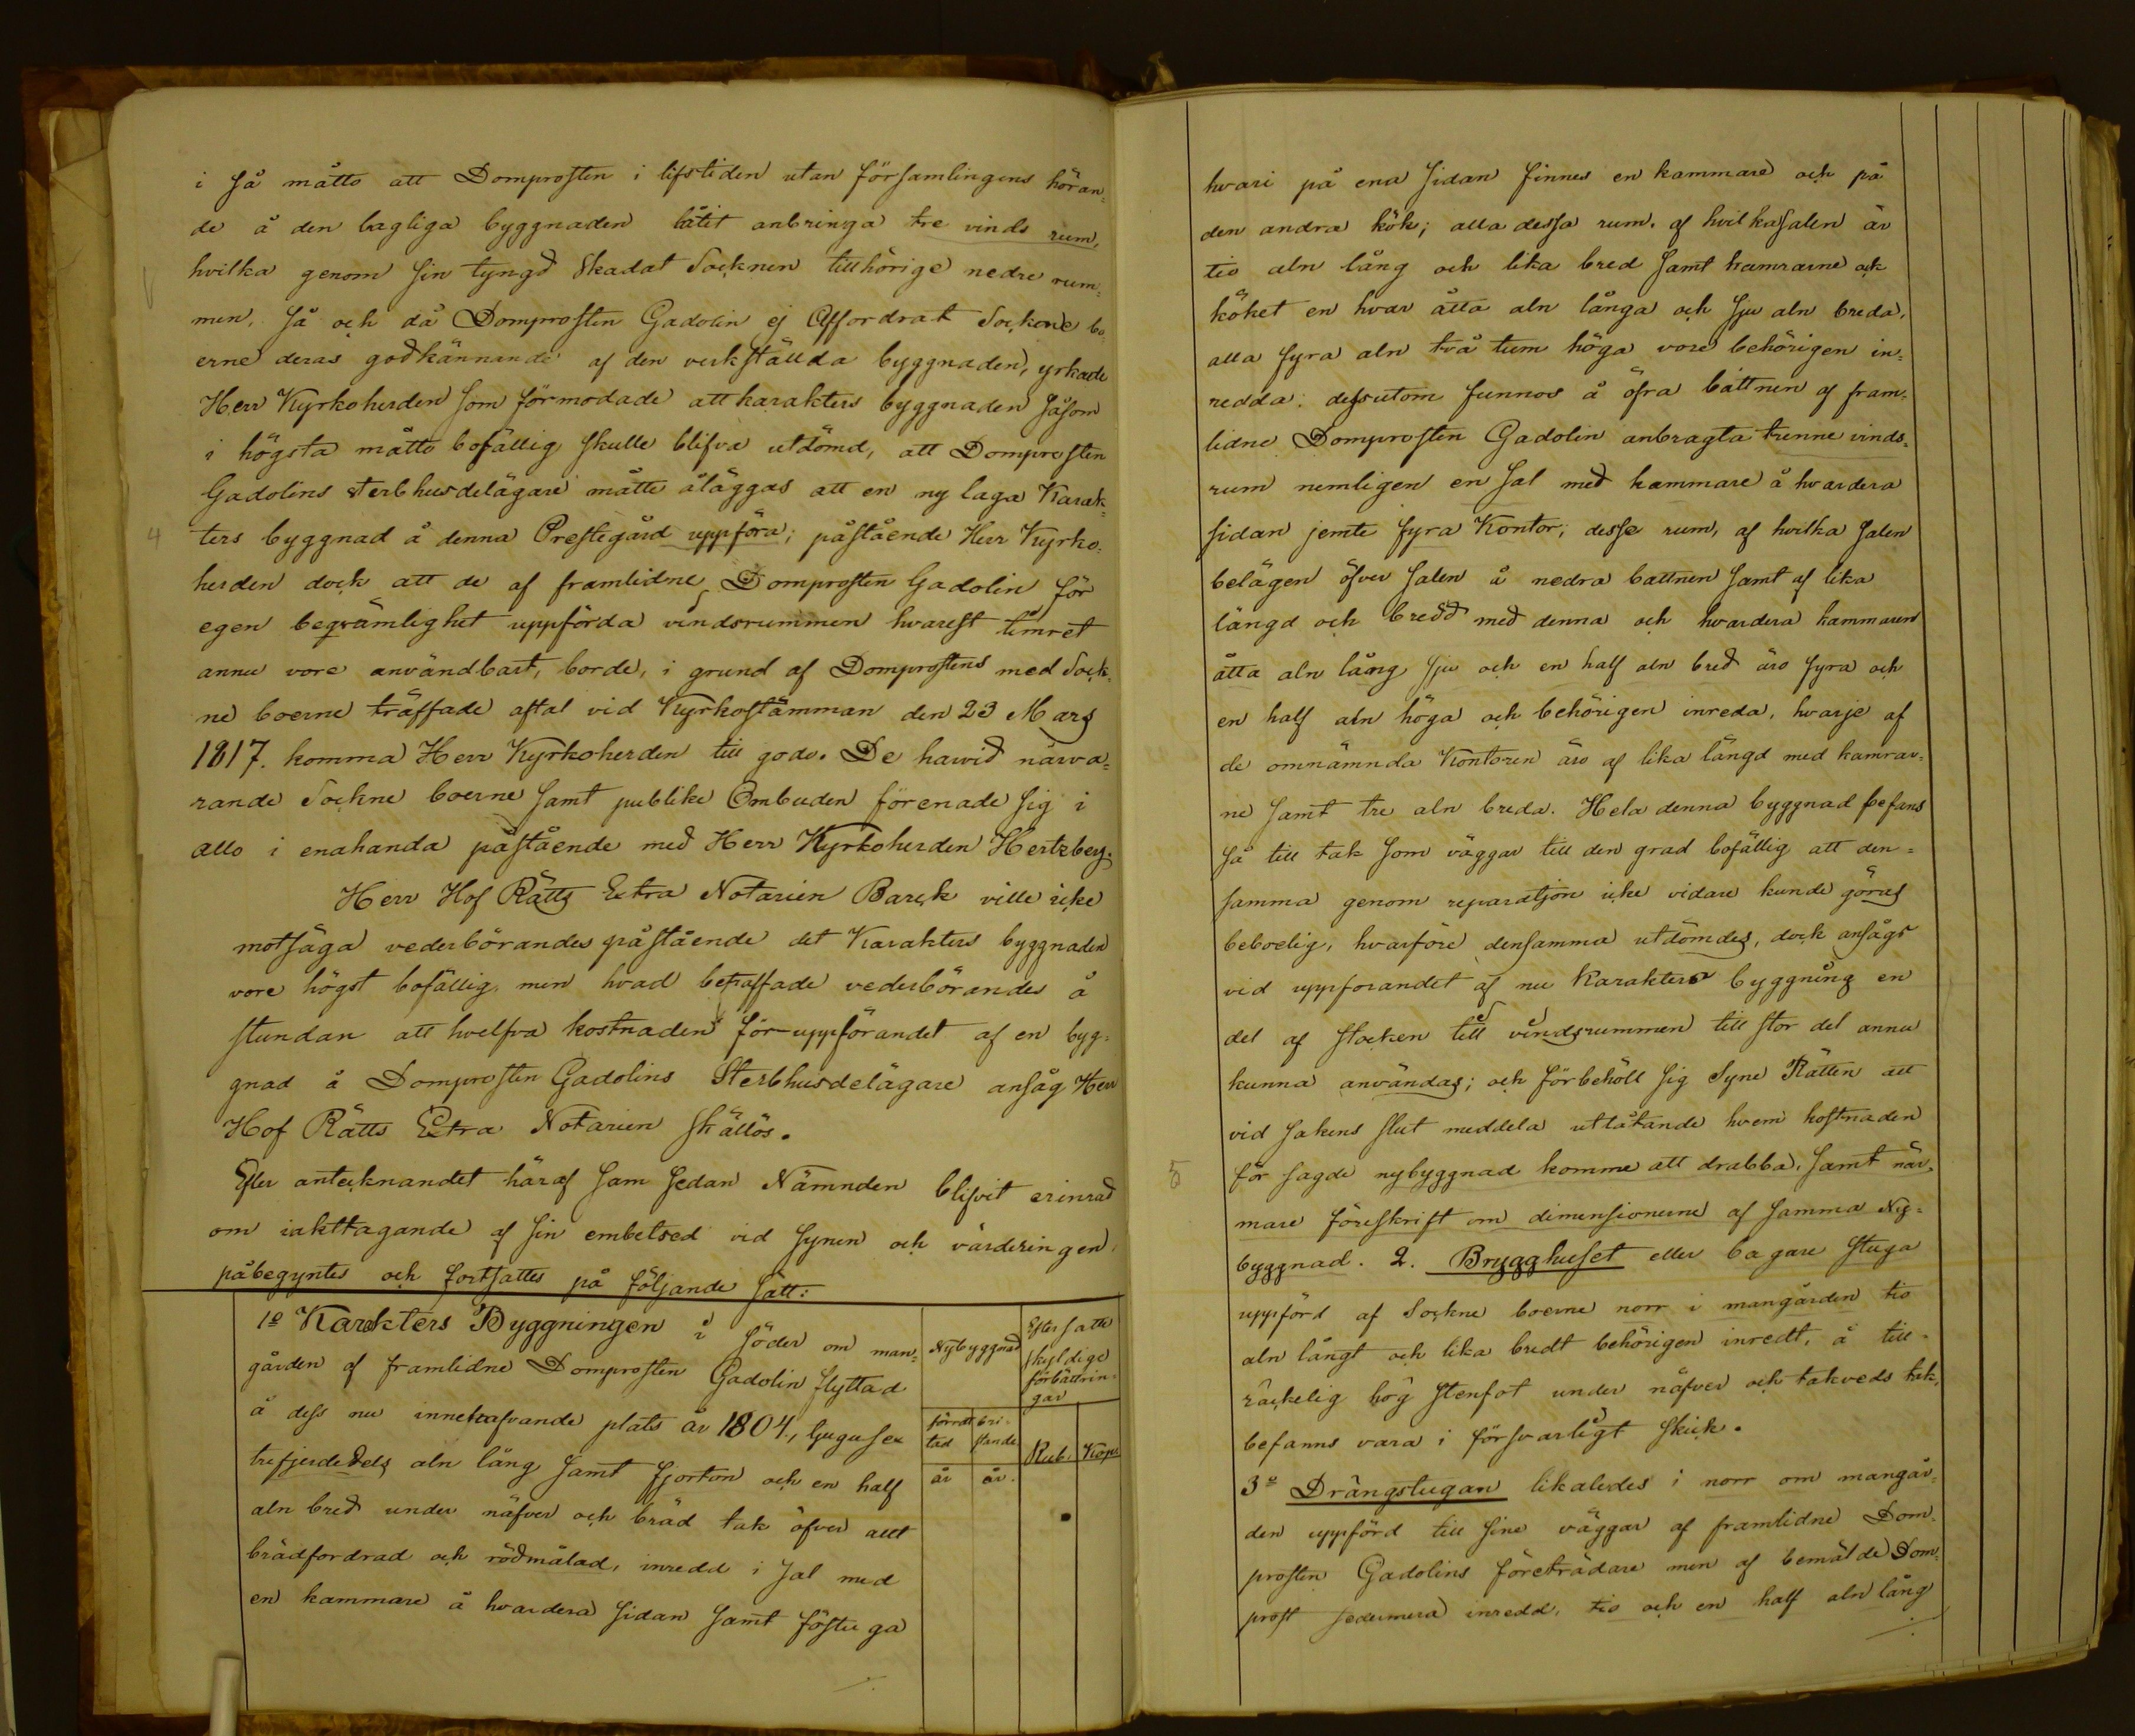 i så måtto att Domprosten i lifstiden utan församlingens höran=
de å den lagliga byggnaden låtit anbringa tre vinds rum,
hvilka genom sin tyngd skadat Socknen tillhörige nedre rum=
men, Så och då Domprosten Gadolin ej Affordrat Sockne bo
erne deras godkännande af den verkställda byggnaden, yrkade
Herr Kyrkoherden som förmodade att karakters byggnaden såsom
i högsta måtto bofällig skulle blifva utdömd, att Domprosten
Gadolins sterbhusdelägare måtte åläggas att en ny laga Karak=
4
ters byggnad å denna Prestegård uppföra; påstående Herr Kyrko=
herden dock att de af framlidne Domprosten Gadolin för
egen beqvämlighet uppförda vindsrummen hvarest timret
annu vore användbart, borde, i grund af Domprostens med Sock=
ne boerne träffade aftal vid Kyrkostämman den 23 Mars
1817. komma Herr Kyrkoherden till godo. De harvid närva=
rande Sockne boerne samt publike Ombuden förenade sig i
allo i enahanda påstående med Herr Kyrkoherden Hertzberg;
Herr Hof Rätts Extra Notarien Barck ville icke
motsäga vederbörandes påstående det Karakters byggnaden
vore högst bofällig, men hvad beträffade vederbörandes å
stundan att hvelfva kostnaden för uppförandet af en byg=
gnad å Domprosten Gadolins Sterbhusdelägare ansåg Herr
Hof Rätts Extra Notarien skällös.
Efter antecknandet häraf Sam sedan Nämnden blifvit erinrad
om iakttagande af sin embetsed vid synen och värderingen,
påbegyntes och fortsattes på följande sätt:
1º Karakters Byggningen i söder om man=
gården af framlidne Domprosten Gadolin flyttad
å dess nu innehafvande plats år 1804, tjugusex
trefjerdedels aln lång samt fjorton och en half
aln bred under näfver och bräd tak öfver allt
brädfordrad och rödmålad, inredd i sal med
en kammare å hvardera sidan samt föstuga
Nybyggnad
Eftersatte
skyldige
förbättrin=
gar
förrät
tad
bri=
stande
år
år.
Rub.
Kop.
hvari på ena sidan finnes en kammare och på
den andra kök; alla dessa rum, af hvilka salen är
tio aln lång och lika bred samt kamrarne och
köket en hvar åtta aln långa och sju aln breda,
alla fyra aln två tum höga vore behörigen in=
redda: dessutom funnos å öfra båttnen af fram=
lidne Domprosten Gadolin anbragta trenne vinds=
rum nemligen en sal med kammare å hvardera
sidan jemte fyra Kontor; desse rum, af hvilka salen
belägen öfver salen å nedra battnen samt af lika
längd och bredd med denna och hvardera kammaren
åtta aln lång sju och en half aln bred äro fyra och
en half aln höga och behörigen inreda, hvarje af
de omnämnda Kontoren äro af lika längd med kamrar=
ne samt tre aln breda. Hela denna byggnad befans
så till tak som väggar till den grad bofällig att den=
samma genom reparatjon icke vidare kunde göras
beboelig, hvarföre densamma utdömdes, dock ansågs
vid upprorandet af nu Karakters byggning en
del af stocken till vindsrummen till stor del annu
kunna användas; och förbehöll sig Syne Rätten att
vid sakens slut meddela utlåtande hvem kostnaden
5
för sagde nybyggnad komme att drabba, samt när=
mare föreskrift om dimensionerne af samma Ny=
byggnad. 2. Brygghuset eller bagare stuga
uppförd af Sockne boerne norr i mangården tio
aln långt och lika bredt behörigen inredt, å till=
räckelig hög stenfot under näfver och takveds tak,
befanns vara i försvarligt skick.
3º Drängstugan likaledes i norr om mangår=
den uppförd till sine väggar af framlidne Dom=
prosten Gadolins företrädare men af bemälde Dom=
prost sedermera inredd, tio och en half aln lång